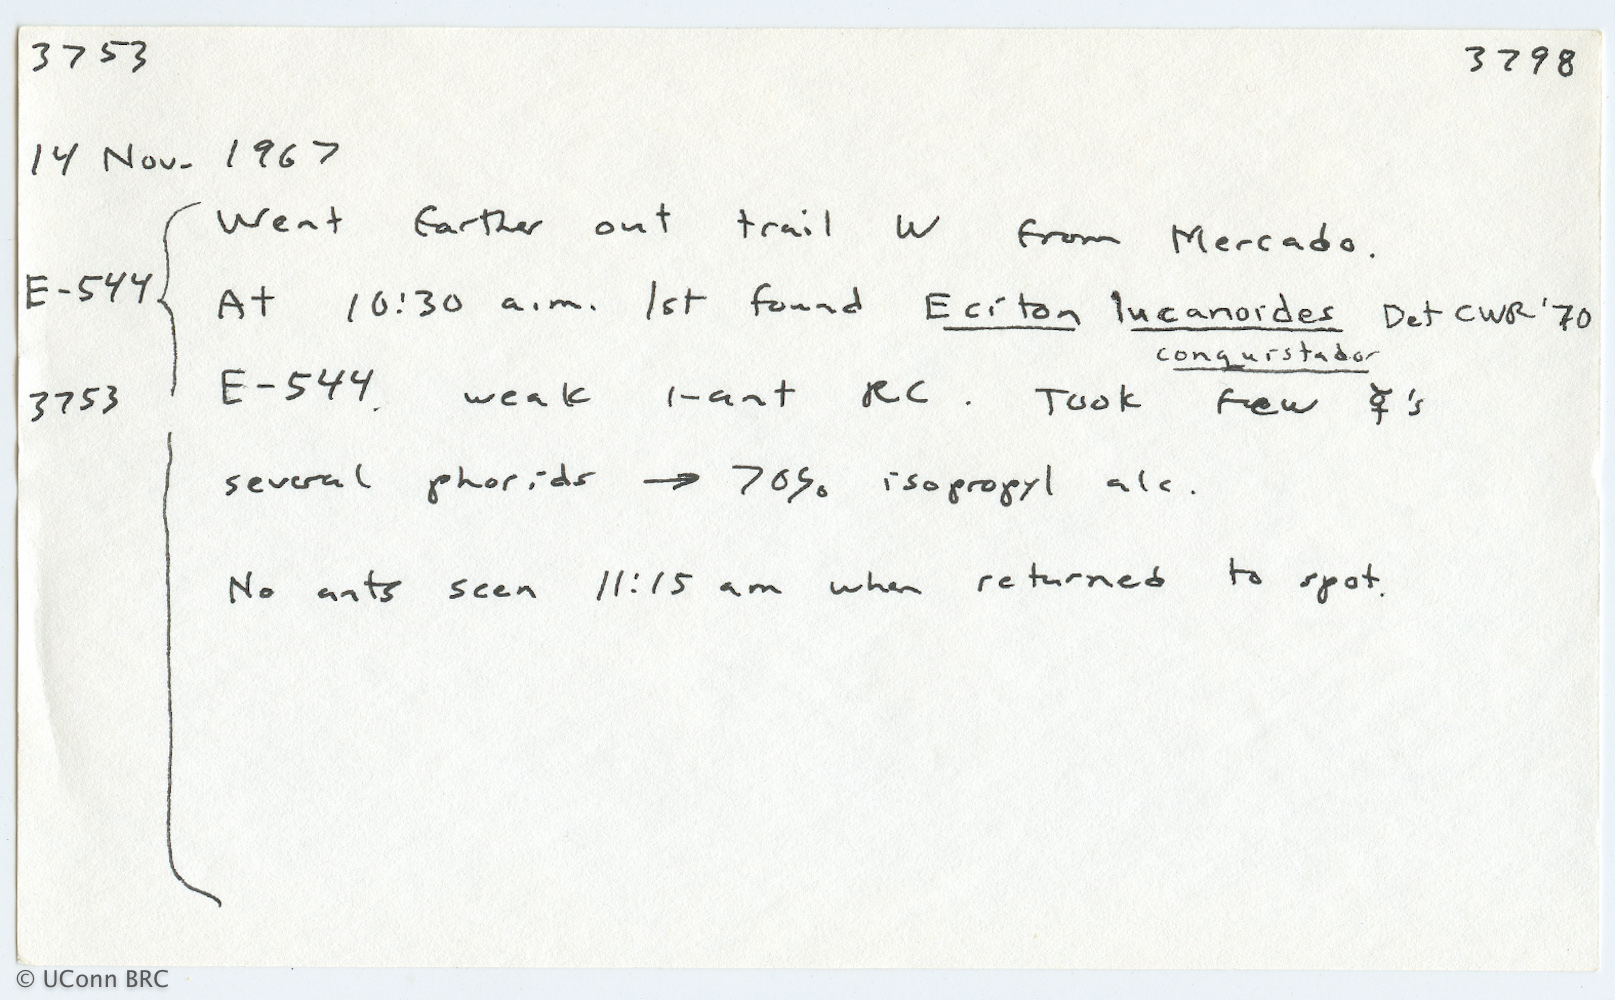 3753 3798
14 Nov. 1967
Went farther out trail W from Mercado.
E-544 At 10:30 a.m. 1st found Eciton lucanoides Det CWR '70
conquistador
3753 E-544. weak 1-ant RC. Took few ☿'s
several phorids → 70% isopropyl alc.
No ants seen 11:15 am when returned to spot.
© UConn BRC